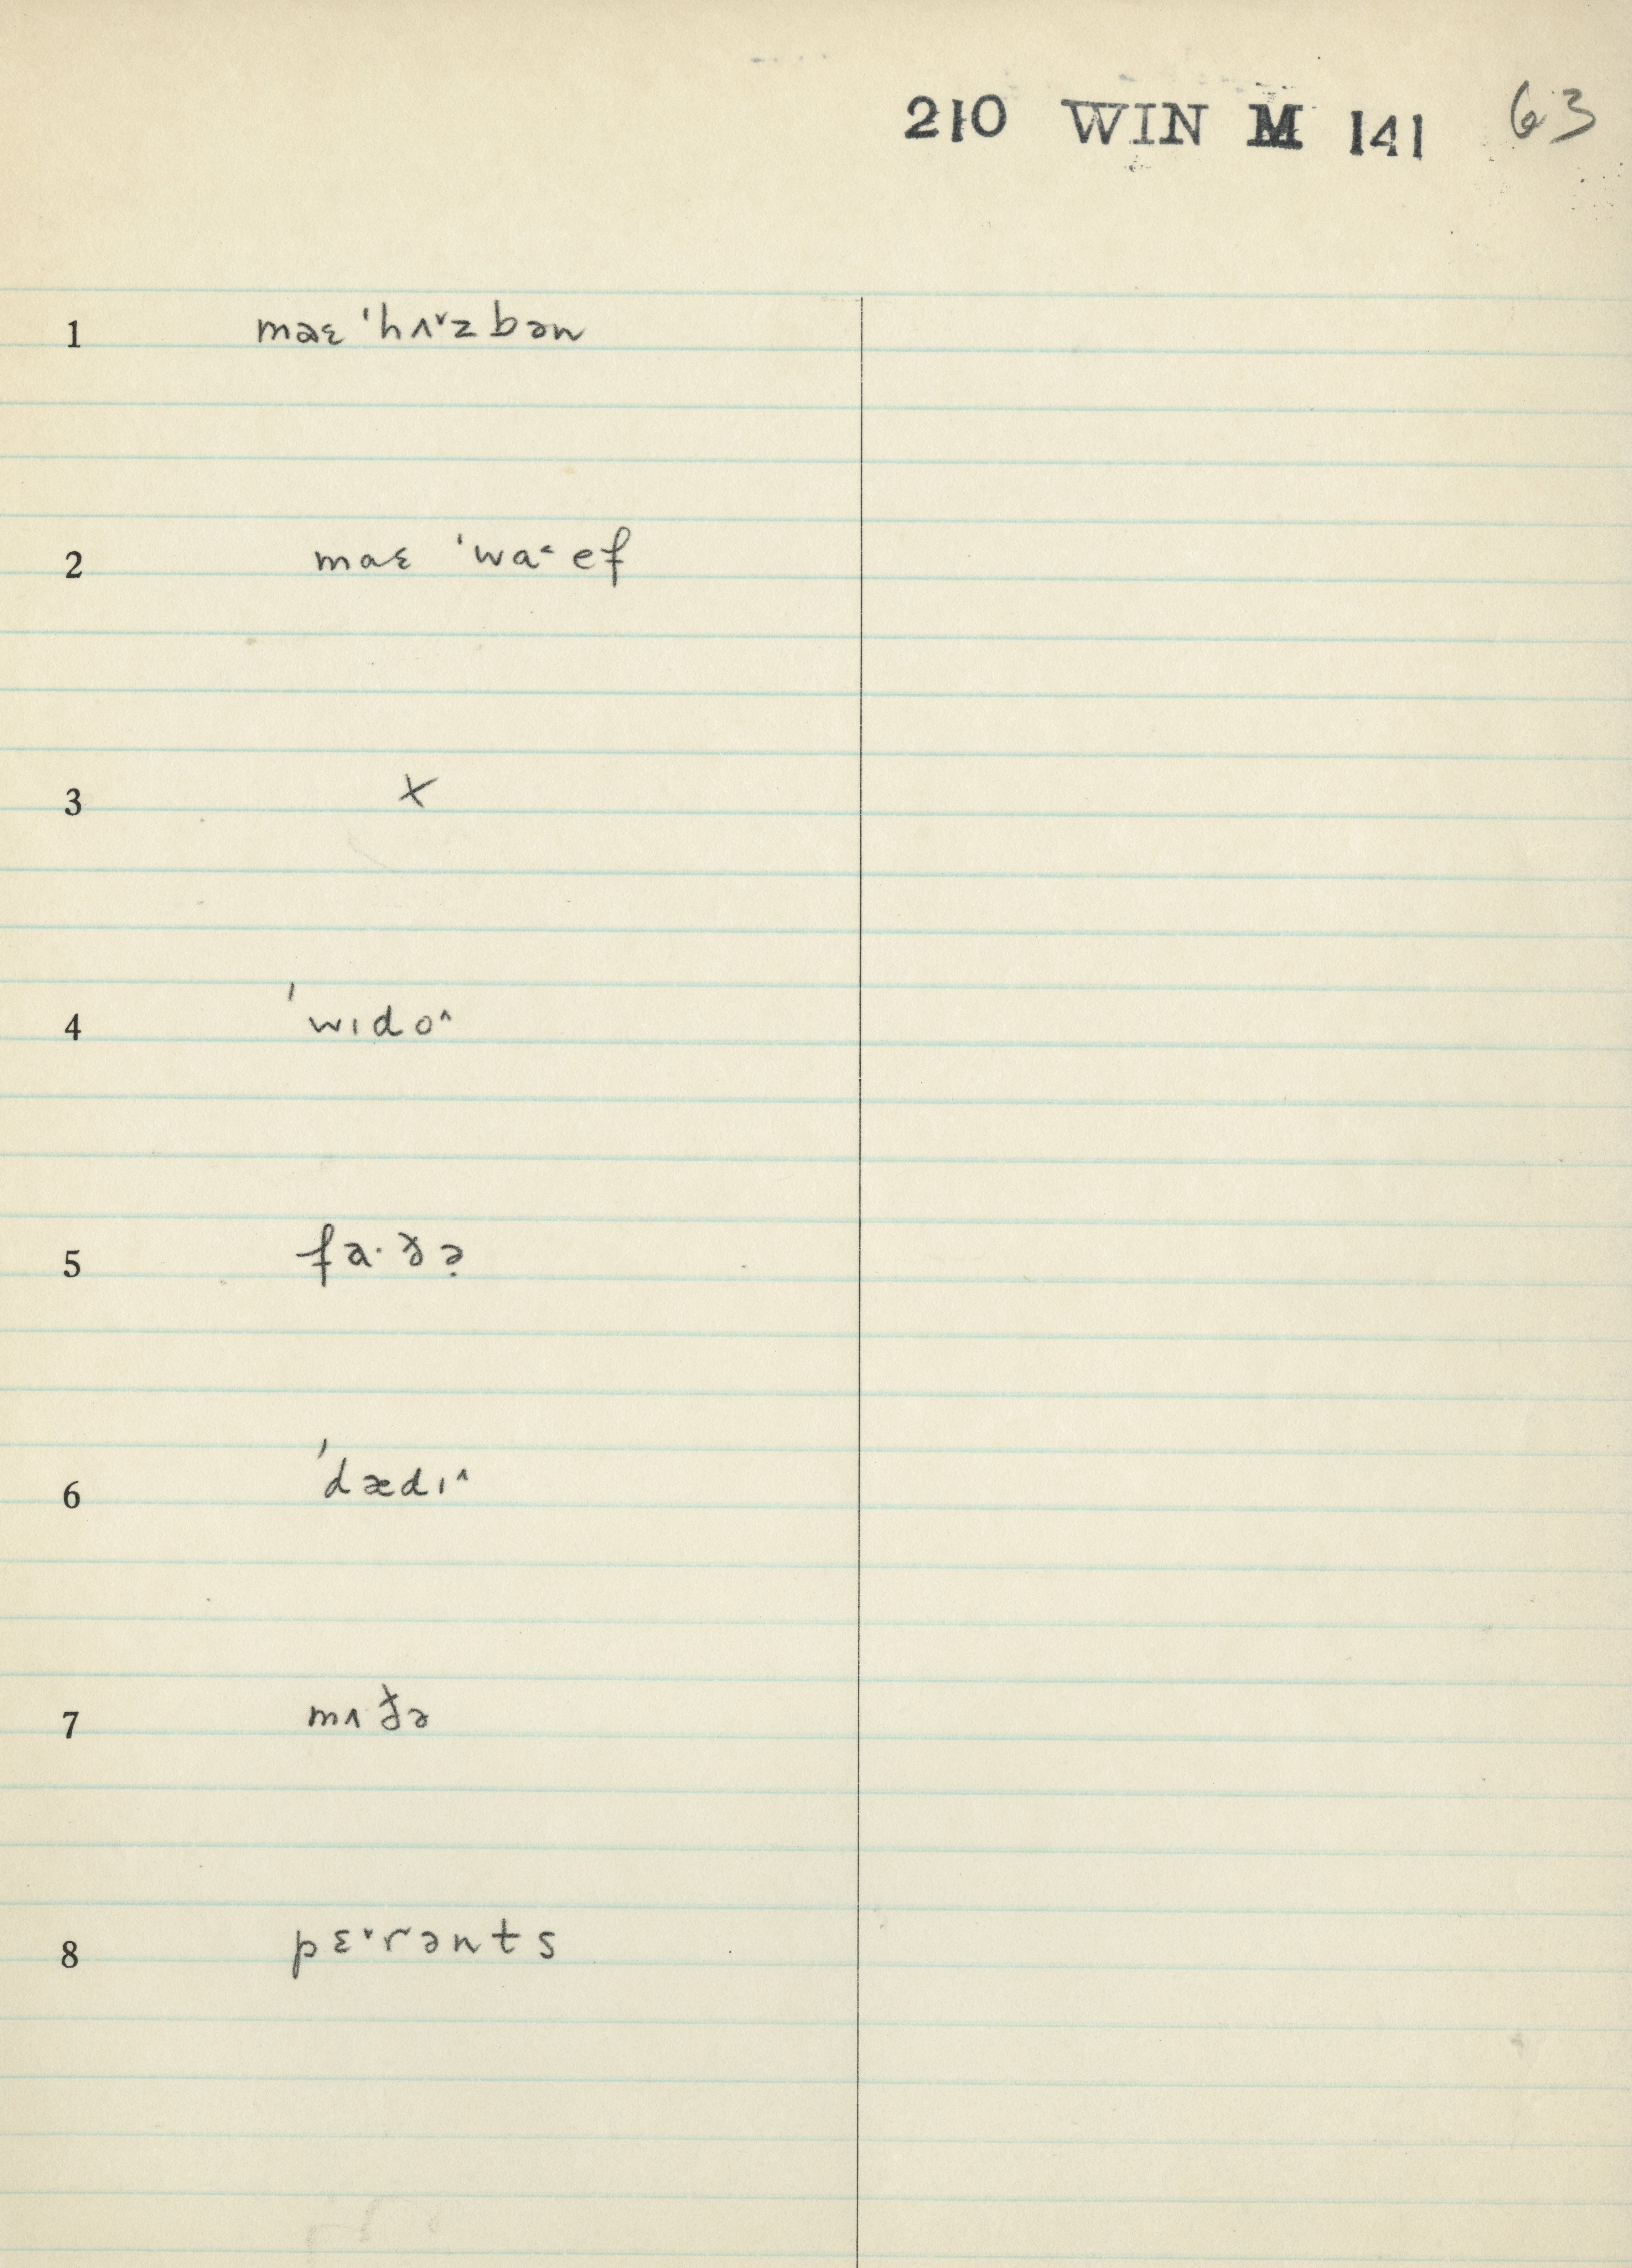 210 WIN M 141 63
1 maɛ ˈhʌ˅zbən
2 maɛ ˈwa˂ef
3 X
4 ˈwɪdo^
5 fa·ðə̣
6 ˈdædɪ^
7 mʌðə
8 pɛ˅rənts